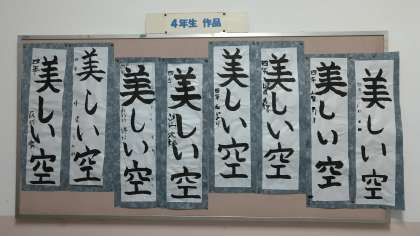 4年生 作品
美しい空
美しい空
美しい空
美しい空
美しい空
美しい空
美しい空
美しい空